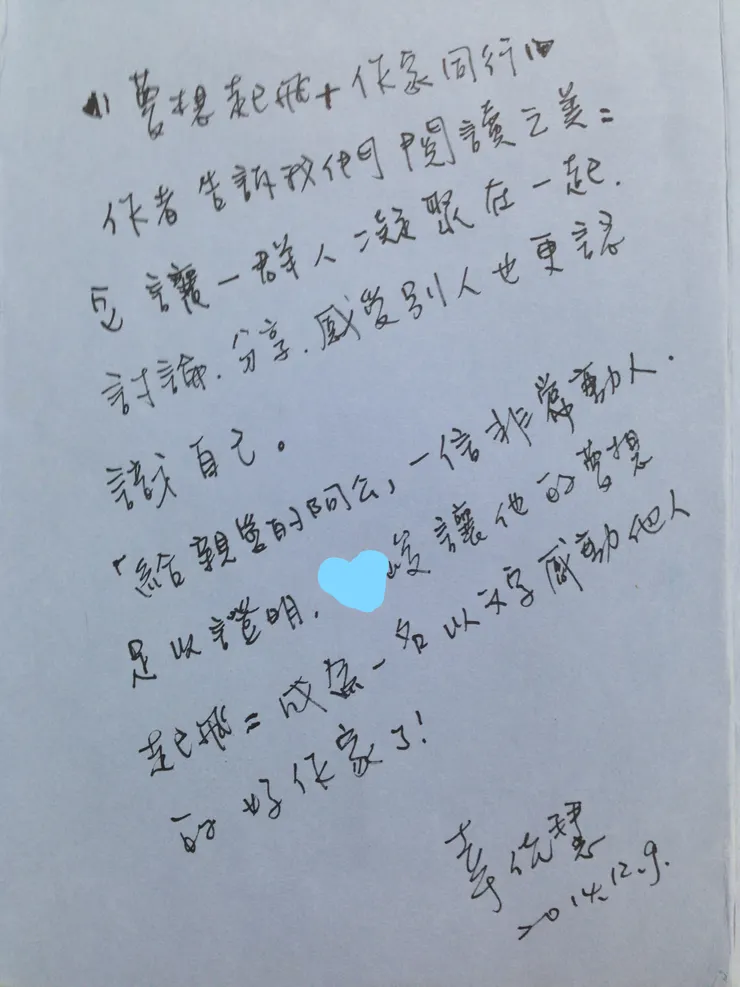 "夢想起飛+作家同行"
作者告訴我們閱讀之美=
它讓一群人凝聚在一起.
討論.分享.感受別人也更認
識自己。
「給親愛的阿公」一信非常動人.
足以證明. 讓他的夢想
起飛=成為一名以文字感動他人
的好作家了!
2014.12.9.